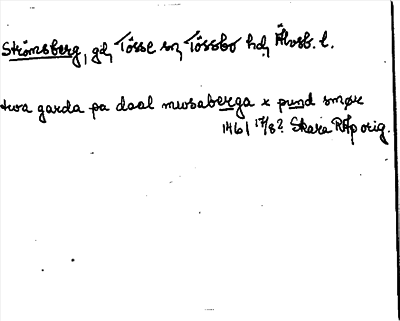 Strömsberg, gd, Tösse sn, Tössbo hd, Älvsb. l.
twa garda pa daal mwsaberga x pund smør
1461 17/8? Skara RAp orig.